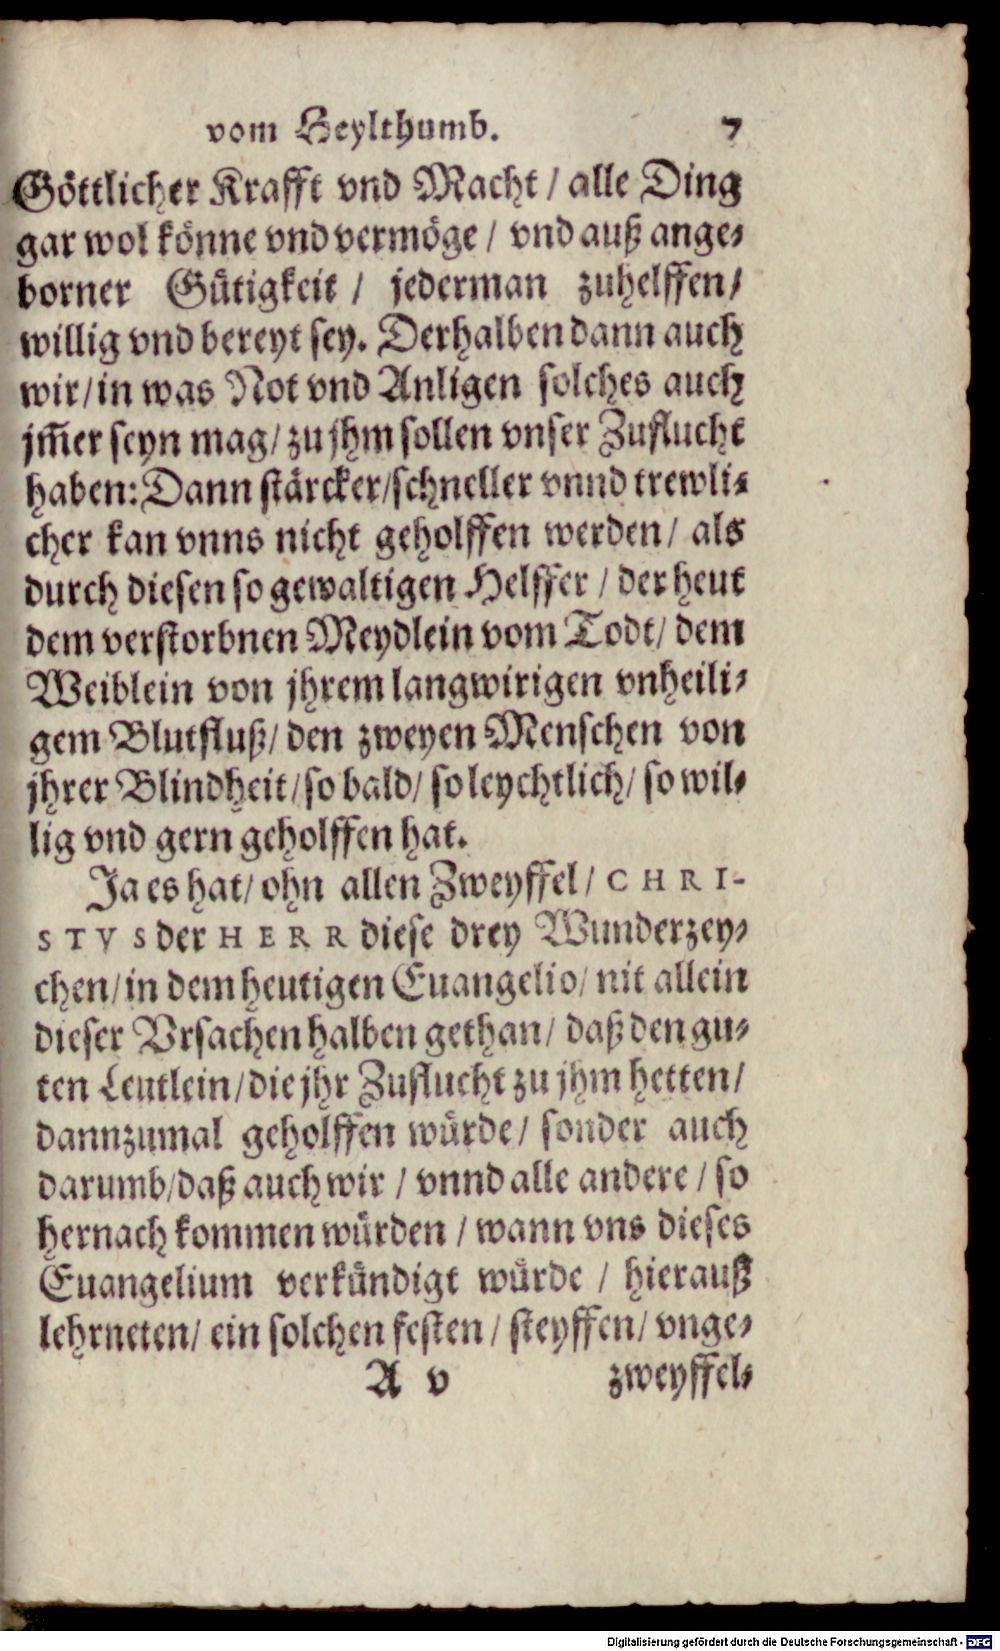 vom Heylthumb. 7
Göttlicher Krafft vnd Macht / alle Ding
gar wol könne vnd vermöge / vnd auß ange-
borner Gütigkeit / jederman zuhelffen /
willig vnd bereyt sey. Derhalben dann auch
wir / in was Not vnd Anligen solches auch
jm̃er seyn mag / zu jhm sollen vnser Zuflucht
haben: Dann stärcker / schneller vnnd trewli-
cher kan vnns nicht geholffen werden / als
durch diesen so gewaltigen Helffer / der heut
dem verstorbnen Meydlein vom Todt / dem
Weiblein von jhrem langwirigen vnheili-
gem Blutfluß / den zweyen Menschen von
jhrer Blindheit / so bald / so leychtlich / so wil-
lig vnd gern geholffen hat.
Ja es hat / ohn allen Zweyffel / CHRI-
STVS der HERR diese drey Wunderzey-
chen / in dem heutigen Euangelio / nit allein
dieser Vrsachen halben gethan / daß den gu-
ten Leutlein / die jhr Zuflucht zu jhm hetten /
dannzumal geholffen würde / sonder auch
darumb / daß auch wir / vnnd alle andere / so
hernach kommen würden / wann vns dieses
Euangelium verkündigt würde / hierauß
lehrneten / ein solchen festen / steyffen / vnge-
A v zweyffel-
Digitalisierung gefördert durch die Deutsche Forschungsgemeinschaft - DFG